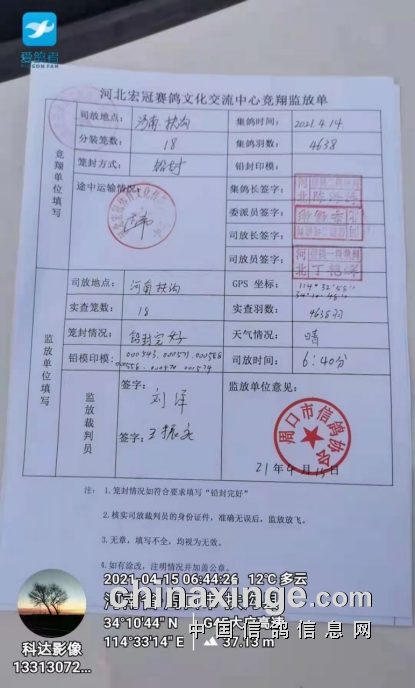 爱鸽者
河北宏冠赛鸽文化交流中心竞翔监放单
竞翔单位填写
司放地点：
河南 扶沟
集鸽时间：
2021.4.14
分装笼数：
18
集鸽羽数：
4638
笼封方式：
铅封
铅封印模：
途中运输情况：
正常
集鸽长签字：
委派员签字：
司放长签字：
司放员签字：
监放单位填写
司放地点：
河南 扶沟
GPS 坐标：
114°32′58″
34°10′45″
实查笼数：
18
实查羽数：
4638羽
笼封情况：
铅封完好
天气情况：
晴
铅模印模：
000543、000571、000586
000556、000570、000574
司放时间：
6:40分
监放裁判员
签字：
刘洋
签字：
王振
监放单位意见：
周口市信鸽协会
21年4月15日
注： 1.笼封情况如符合要求填写“铅封完好”
2.核实司放裁判员的身份证件，准确无误后，监放放飞。
3.无章，填写不全，均视为无效。
4.如有涂改，注明情况并加盖公章。
2021-04-15 06:44:26 12℃多云
河南省周口市扶沟县
chinaxinge.com
34°10′44″N
G45大广高速
中国信鸽信息网
114°33′14″E
37.13 m
科达影像
13313072...